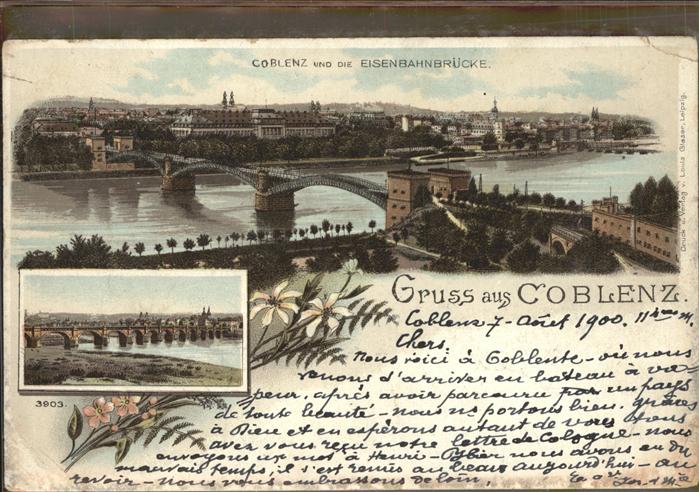 COBLENZ UND DIE EISENBAHNBRÜCKE.
Druck u. Verlag v. Louis Glaser, Leipzig.
GRUSS AUS COBLENZ.
Coblenz 7 - Août 1900. 11 hres m.
Chers.
Nous voici à Coblentz - où nous
venons d'arriver en bateau à va-
peur, après avoir parcouru un pays
de toute beauté - nous ns portons bien, grâces
à Dieu et en espérons autant de vous tous
avez vous reçu notre lettre de Cologne - nous
envoyons un mot à Henri - Hier nous avons eu du
mauvais temps, il s'est remis au beau aujourd'hui - au
revoir - nous vous embrassons de loin.
3903.